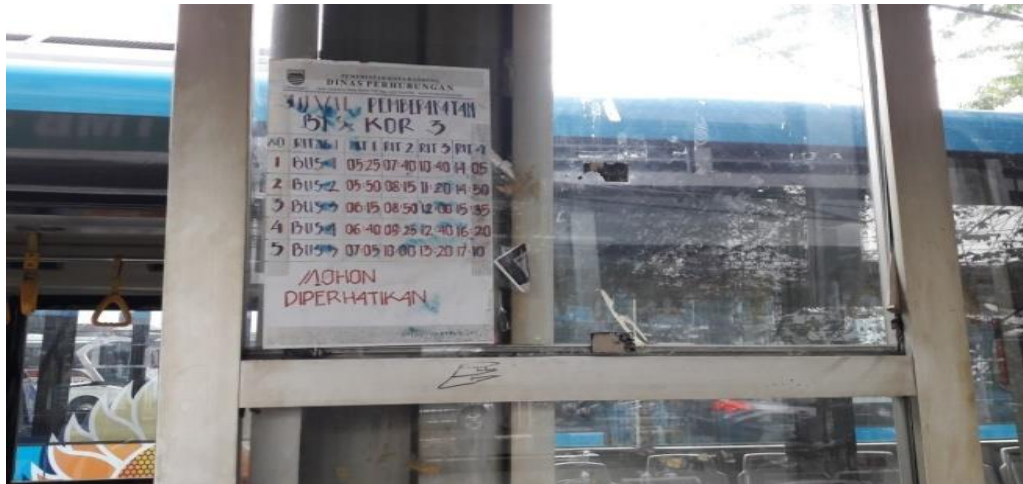 PEMERINTAH KOTA BANDUNG
DINAS PERHUBUNGAN
PEMBERANGKATAN
KOR 3
NO RIT 1 RIT 2 RIT 3 RIT 4
1 BUS 1 05:25 07:40 10:40 14:05
2 BUS 2 05:50 08:15 11:20 14:50
3 BUS 3 06:15 08:50 12:00 15:35
4 BUS 4 06:40 09:25 12:40 16:20
5 BUS 5 07:05 10:00 13:20 17:10
MOHON
DIPERHATIKAN